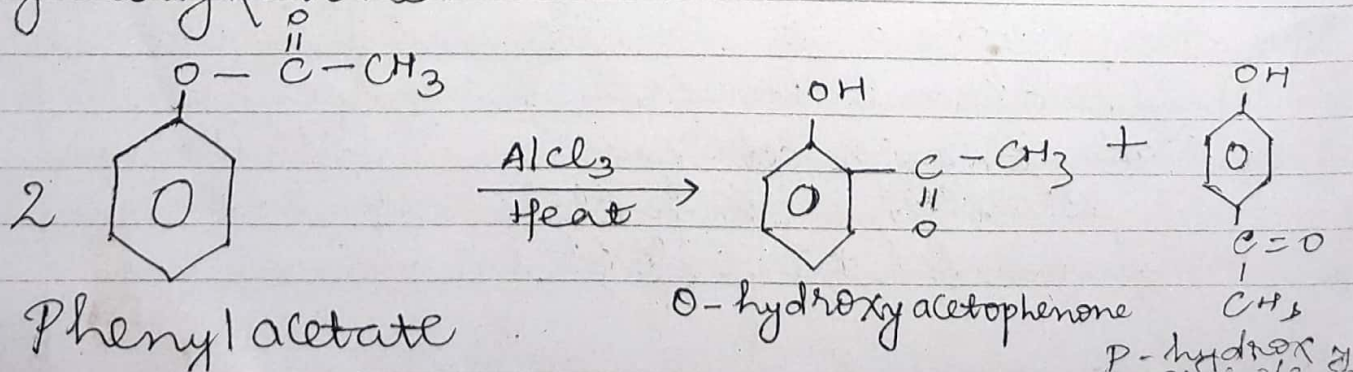 O
||
O - C - CH3
OH
OH
2
AlCl3
Heat
C - CH3 +
||
O
C = O
|
CH3
Phenyl acetate
O-hydroxy acetophenone
P-hydroxy